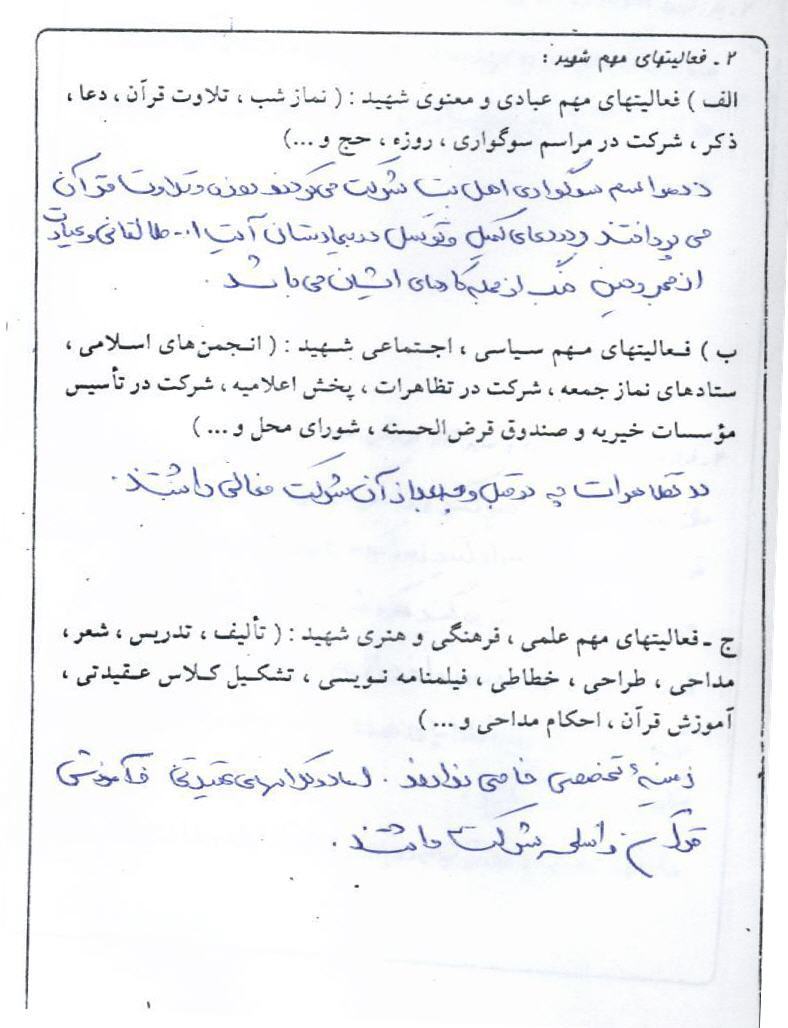 ۲ ـ فعالیتهای مهم شهید :
الف ) فعالیتهای مهم عبادی و معنوی شهید : ( نماز شب ، تلاوت قرآن ، دعا ،
ذکر ، شرکت در مراسم سوگواری ، روزه ، حج و ...)
در مراسم سوگواری اهل بیت شرکت می‌کردند روزه و تلاوت قرآن
می پرداختند و دعای کمیل و توسل در بیمارستان آیت ا... طالقانی و عیادت
از مجروحین جنگ از جمله کارهای ایشان می باشد .
ب ) فعالیتهای مهم سیاسی ، اجتماعی شهید : ( انجمن‌های اسلامی ،
ستادهای نماز جمعه ، شرکت در تظاهرات ، پخش اعلامیه ، شرکت در تأسیس
مؤسسات خیریه و صندوق قرض‌الحسنه ، شورای محل و ... )
در تظاهرات چه در قبل و چه بعد از آن شرکت فعالی داشتند .
ج ـ فعالیتهای مهم علمی ، فرهنگی و هنری شهید : ( تألیف ، تدریس ، شعر ،
مداحی ، طراحی ، خطاطی ، فیلمنامه نویسی ، تشکیل کلاس عقیدتی ،
آموزش قرآن ، احکام مداحی و ... )
زمینهٔ تخصصی خاصی ندارند . کلاسهای عقیدتی آموزشی
قرآن شرکت داشتند .
۱